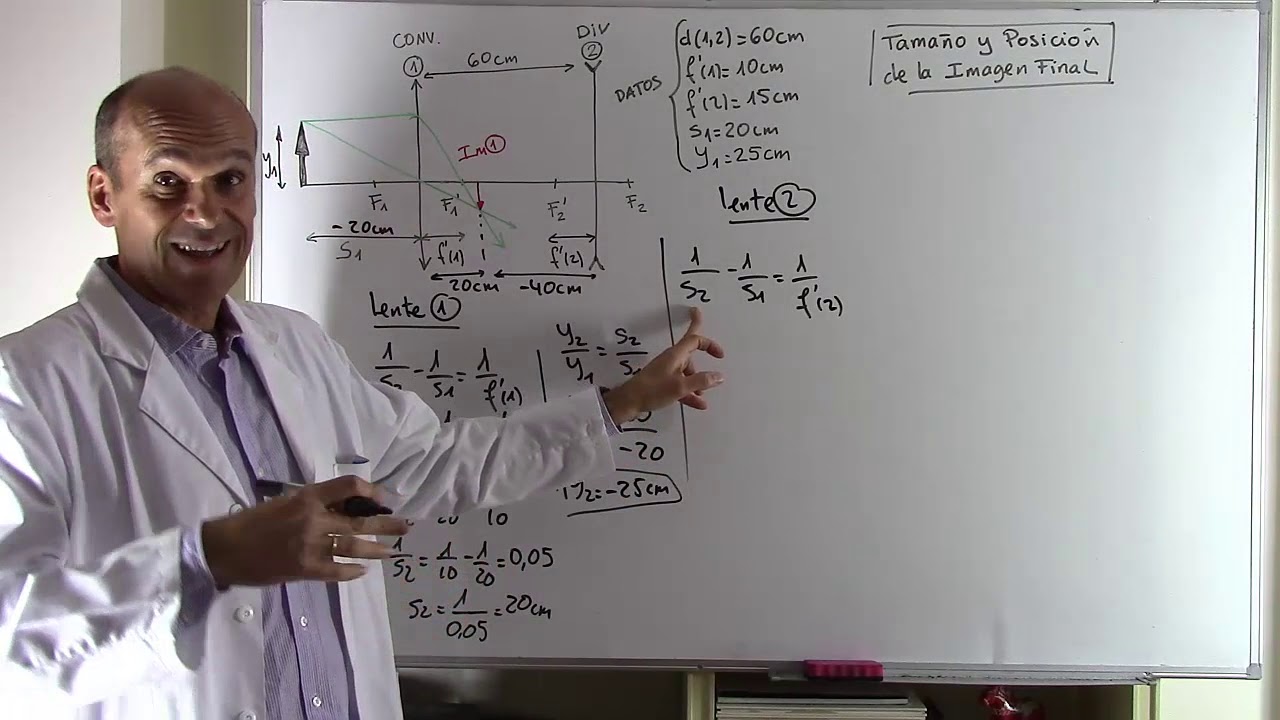 CONV.
①
60cm
DIV
②
y₁
Im①
F₁
F₁'
F₂'
F₂
-20cm
S₁
f'(1)
f'(2)
20cm
-40cm
DATOS
d(1,2)=60cm
f'(1)=10cm
f'(2)=15cm
S₁=20cm
y₁=25cm
Tamaño y Posición
de la Imagen Final
Lente ①
1/S₂ - 1/S₁ = 1/f'(1)
10
1/S₂ = 1/10 - 1/20 = 0,05
S₂ = 1/0,05 = 20cm
y₂/y₁ = S₂/S₁
-20
y₂=-25cm
Lente ②
1/S₂ - 1/S₁ = 1/f'(2)